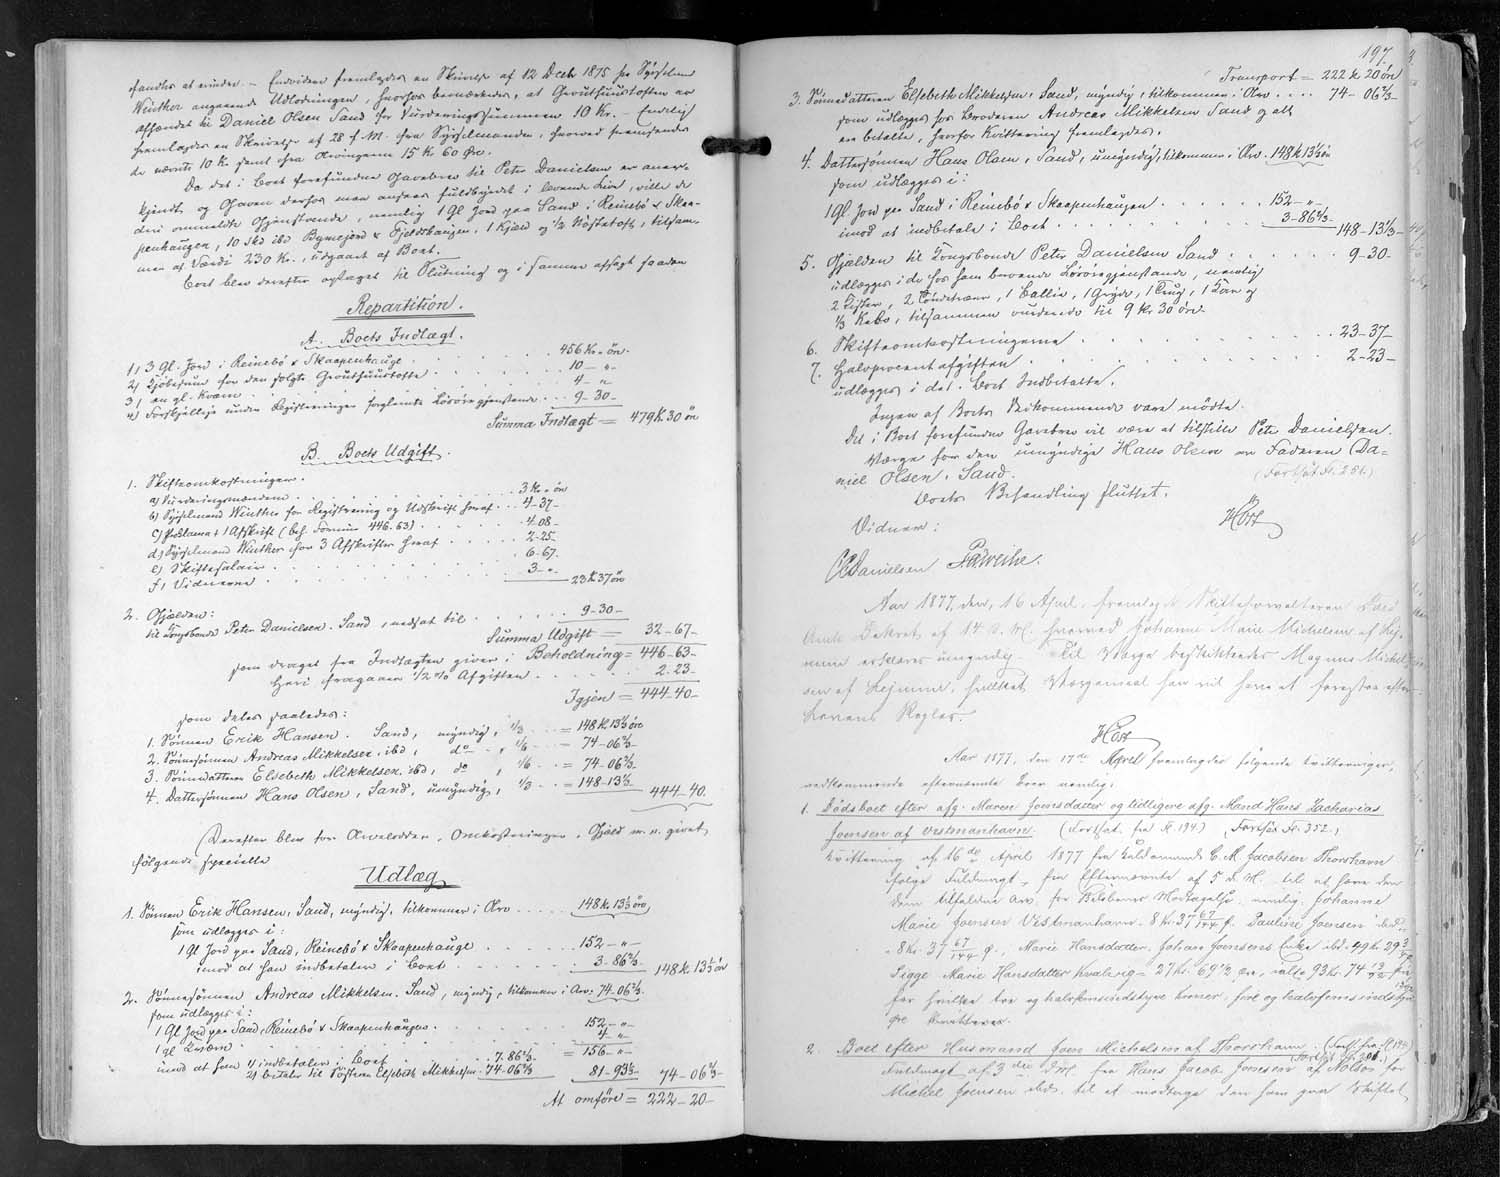 fandtes at erindre. – Endvidere fremlagdes en Skrivelse af 12 Decb 1875 fra Sysselmand
Winther angaaende Udlodningen, hvorhos bemærkedes, at Grouthuustoften er
afhændet til Daniel Olsen Sand for Vurderingssummen 10 Kr. – Endelig
fremlagdes en Skrivelse af 28 f. M. fra Sysselmanden, hvorved fremsendes
de nævnte 10 Kr. samt fra Arvingerne 15 Kr 60 Øre.
Da det i Boet forefundne Gavebrev til Peter Danielsen er aner-
kjendt og Gaven derfor maa ansees fuldbyrdet i levende Live, ville de
deri ommeldte Gjenstande, nemlig 1 Gl Jord paa Sand i Reinebø & Skaa-
penhaugen, 10 Skd ibd Bymejord & Fjeldshaugen, 1 Kjæld og ½ Nøstetoft, tilsam-
men af Værdi 230 Kr., udgaae af Boet.
Boet blev derefter optaget til Slutning og i samme afsagt saadan
Repartition.
A. Boets Indtægt.
1, 3 Gl. Jord i Reinebø & Skaapenhauge . . . 456 Kr. " Øre
2) Kjøbesum for den solgte Grouthuustofte . . . 10 – " –
3, en gl. Kværn . . . 4 – "
4) Forskjellige under Registreringen forglemte Løsøregjenstande . . . 9 – 30 –
Summa Indtægt = 479 K. 30 Øre
B. Boets Udgift.
1. Skifteomkostninger.
a) Vurderingsmændene . . . 3 Kr. " Øre
b) Sysselmand Winther for Registrering og Udskrift heraf . . 4 – 37 –
c) Proclama + 1 Afskrift (beh. Formue 446.63) . . . 4 – 08 –
d) Sysselmand Winther for 3 Afskrifter heraf . . . 2 – 25 –
e) Skiftesalair . . . 6 – 67.
f, Vidnerne . . . 3 – " – 23 K 37 Øre
2. Gjælden:
til Kongsbonde Peter Danielsen. Sand, nedsat til . . . 9 – 30 –
Summa Udgift = 32 – 67 –
som draget fra Indtægten giver i Beholdning = 446 – 63 –
Heri fragaaer ½ % Afgiften . . . 2 – 23 –
Igjen = 444 – 40 –
som deles saaledes:
1. Sønnen Erik Hansen. Sand, myndig, 1/3 . . = 148 K. 13⅓ Øre
2. Sønnesønnen Andreas Mikkelsen, ibd, do , 1/6 . . = 74 – 06⅔ –
3. Sønnedatteren Elsebeth Mikkelsen. ibd, do , 1/6 . . = 74 – 06⅔ –
4. Dattersønnen Hans Olsen, Sand, umyndig, 1/3 . . = 148 – 13⅓ – 444 – 40 –
Derefter blev for Arvelodder, Omkostninger, Gjæld m. v. givet
følgende specielle
Udlæg
1. Sønnen Erik Hansen, Sand, myndig, tilkommer i Arv . . . 148 K. 13⅓ Øre
som udlægges i:
1 Gl Jord paa Sand, Reinebø & Skaapenhauge . . . 152 – " –
imod at han indbetaler i Boet . . . 3 – 86⅔ – 148 K 13⅓ Øre
2. Sønnesønnen Andreas Mikkelsen. Sand, myndig, tilkommer i Arv: 74 – 06⅔
som udlægges i:
1 Gl Jord paa Sand, Reinebø & Skaapenhaugen . . . 152 – " –
1 gl Kværn . . . 4 – " –
= 156 – " –
mod at han 1) indbetaler i Boet . . . 7.86⅔
2) betaler til Søsteren Elsebeth Mikkelsen 74 – 06⅔ 81 – 93⅓ 74 – 06⅔ –
At omføre = 222 – 20 –
197.
Transport = 222 K 20 Øre
3. Sønnedatteren Elsebeth Mikkelsen, Sand, myndig, tilkommer i Arv . . . 74 – 06⅔ –
som udlægges hos Broderen Andreas Mikkelsen Sand og alt
er betalte, hvorfor Kvittering fremlægges.
4. Dattersønnen Hans Olsen, Sand, umyndig, tilkommer i Arv 148 K 13⅓ Øre
som udlægges i:
1 Gl. Jord paa Sand i Reinebø & Skaapenhaugen . . . 152 – " –
imod at indbetale i Boet . . . 3 – 86⅔ – 148 – 13⅓ –
5. Gjælden til Kongsbonde Peter Danielsen Sand . . . 9 – 30 –
udlægges i de hos ham beroende Løsøregjenstande, nemlig
2 Kister, 2 Tøndetræer, 1 Ballie, 1 Gryde, 1 Trug, 1 Karn og
tilsammen vurderede til 9 Kr 30 Øre.
6. Skifteomkostningerne . . . 23 – 37 –
7. Halvprocentafgiften . . . 2 – 23 –
udlægges i det i Boet Indbetalte.
Ingen af Boets Vedkommende vare mødte.
Det i Boet forefundne Gavebrev vil være at tilstille Peter Danielsen.
Værge for den umyndige Hans Olsen er Faderen Da-
niel Olsen, Sand. (Fortsat Fr. 251.)
Boets Behandling sluttet.
Vidner: Høst
CCDanielsen PaWeihe.
Aar 1877, den, 16 April, fremlagde Skifteforvalteren Færø
Amts Dekret af 14. d. M. hvorved Johanne Marie Michelsen af Lej-
mum erklæres umyndig. Til Værge beskikkedes Magnus Michel-
sen af Lejmum, hvilket Værgemaal han vil have at forestaa efter
Lovens Regler.
Høst
Aar 1877, den 17de April fremlagdes følgende Kvitteringer,
vedkommende efternævnte Boer nemlig:
1. Dødsboet efter afg. Maren Joensdatter og tidligere afg. Mand Hans Zacharias
Joensen af Vestmanhavn. (Fortsat. fra F. 194.) (Fortsat Fr. 352.)
Kvittering af 16de April 1877 fra C. M. Jacobsen Thorshavn
ifølge Fuldmagt, fra Efternævnte af 5 d. M. til at hæve den
dem tilfaldne Arv, for nemlig: Johanne
Marie Joensen Vestmanhavn – 8 Kr. 37 67/144 Ø. Pauline Joensen ibd.
– 8 Kr. 37 67/144 Ø., Marie Hansdatter, Johan Joensens Enke ibd. 49 Kr. 29
Sigge Marie Hansdatter Kvalvig = 27 Kr. 69½ Øre, ialt 93 Kr. 74
for hvilke tre og halvfemsindstyve Kroner, fire og halvfjerdsindstyve
Øre kvitteres.
2. Boet efter Husmand Joen Michelsen af Thorshavn. (Forts. fra F. 194)
(Fortsat Fr. 201.)
Fuldmagt af 3die d. M. fra Hans Jacob Joensen af Nolsø for
Michel Joensen ibd. til at modtage den ham paa Skiftet